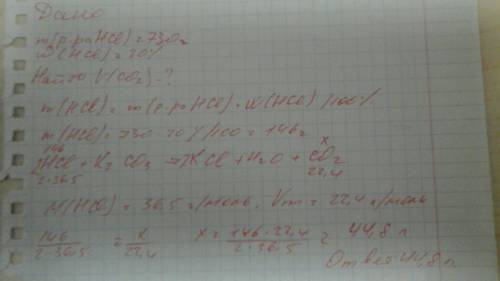 Дано
m(р-раHCl)=730г
ω(HCl)=20%
Найти V(CO₂)-?
m(HCl)=m(р-раHCl)·ω(HCl)/100%
m(HCl)=730·20%/100=146г
146 x
2HCl+K₂CO₃=>2KCl+H₂O+CO₂
2·36,5 22,4
M(HCl)=36,5г/моль. Vm=22,4л/моль
146/2·36,5=x/22,4 x=146·22,4/2·36,5=44,8л
Ответ 44,8л